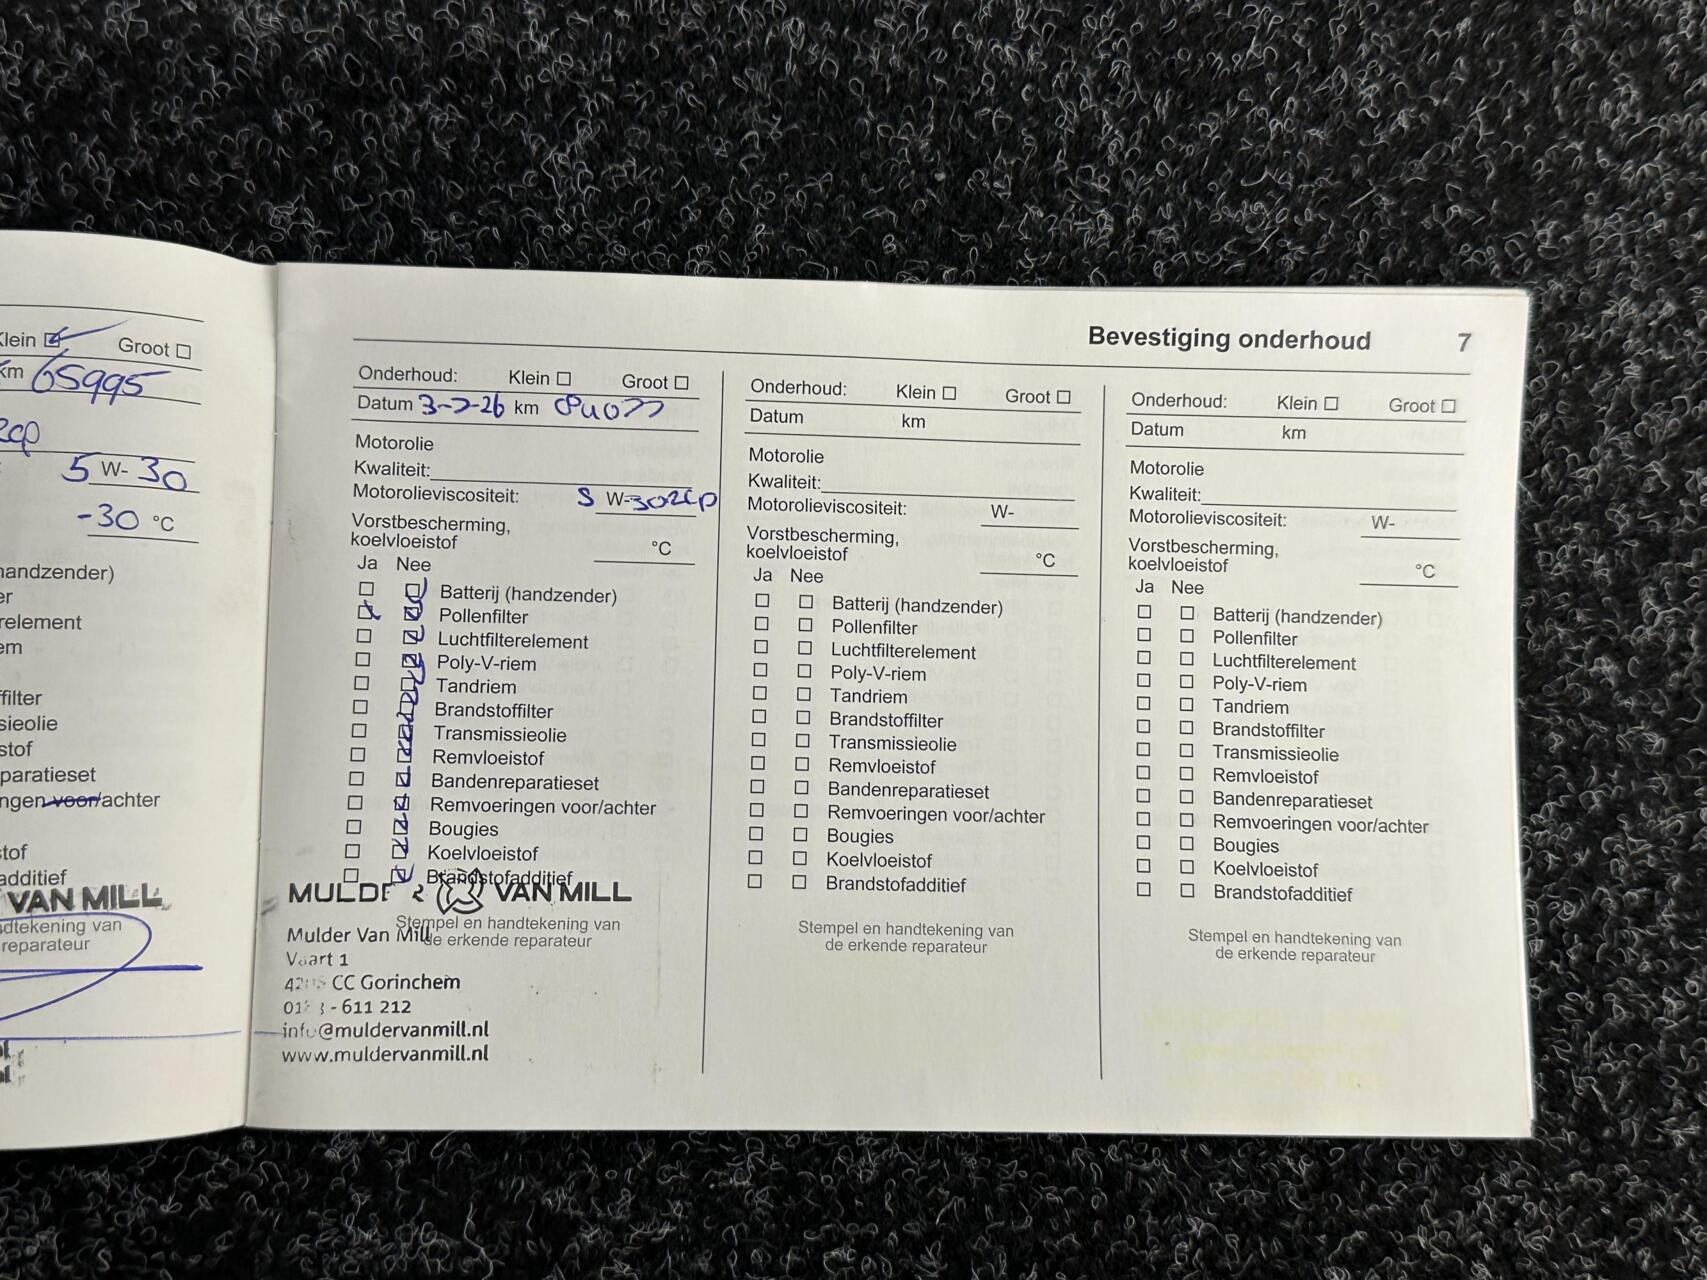 Klein Groot
km 65995
5 W- 30
-30 °C
handzender)
relement
filter
sieolie
stof
paratieset
ngen voor/achter
stof
additief
VAN MILL
dtekening van
reparateur
Bevestiging onderhoud 7
Onderhoud: Klein Groot
Datum 3-7-26 km 84077
Motorolie
Kwaliteit:
Motorolieviscositeit: 5 W-30
Vorstbescherming,
koelvloeistof °C
Ja Nee
Batterij (handzender)
Pollenfilter
Luchtfilterelement
Poly-V-riem
Tandriem
Brandstoffilter
Transmissieolie
Remvloeistof
Bandenreparatieset
Remvoeringen voor/achter
Bougies
Koelvloeistof
Brandstofadditief
MULDER VAN MILL
Stempel en handtekening van
de erkende reparateur
Mulder Van Mill
Vaart 1
CC Gorinchem
- 611 212
info@muldervanmill.nl
www.muldervanmill.nl
Onderhoud: Klein Groot
Datum km
Motorolie
Kwaliteit:
Motorolieviscositeit: W-
Vorstbescherming,
koelvloeistof °C
Ja Nee
Batterij (handzender)
Pollenfilter
Luchtfilterelement
Poly-V-riem
Tandriem
Brandstoffilter
Transmissieolie
Remvloeistof
Bandenreparatieset
Remvoeringen voor/achter
Bougies
Koelvloeistof
Brandstofadditief
Stempel en handtekening van
de erkende reparateur
Onderhoud: Klein Groot
Datum km
Motorolie
Kwaliteit:
Motorolieviscositeit: W-
Vorstbescherming,
koelvloeistof °C
Ja Nee
Batterij (handzender)
Pollenfilter
Luchtfilterelement
Poly-V-riem
Tandriem
Brandstoffilter
Transmissieolie
Remvloeistof
Bandenreparatieset
Remvoeringen voor/achter
Bougies
Koelvloeistof
Brandstofadditief
Stempel en handtekening van
de erkende reparateur